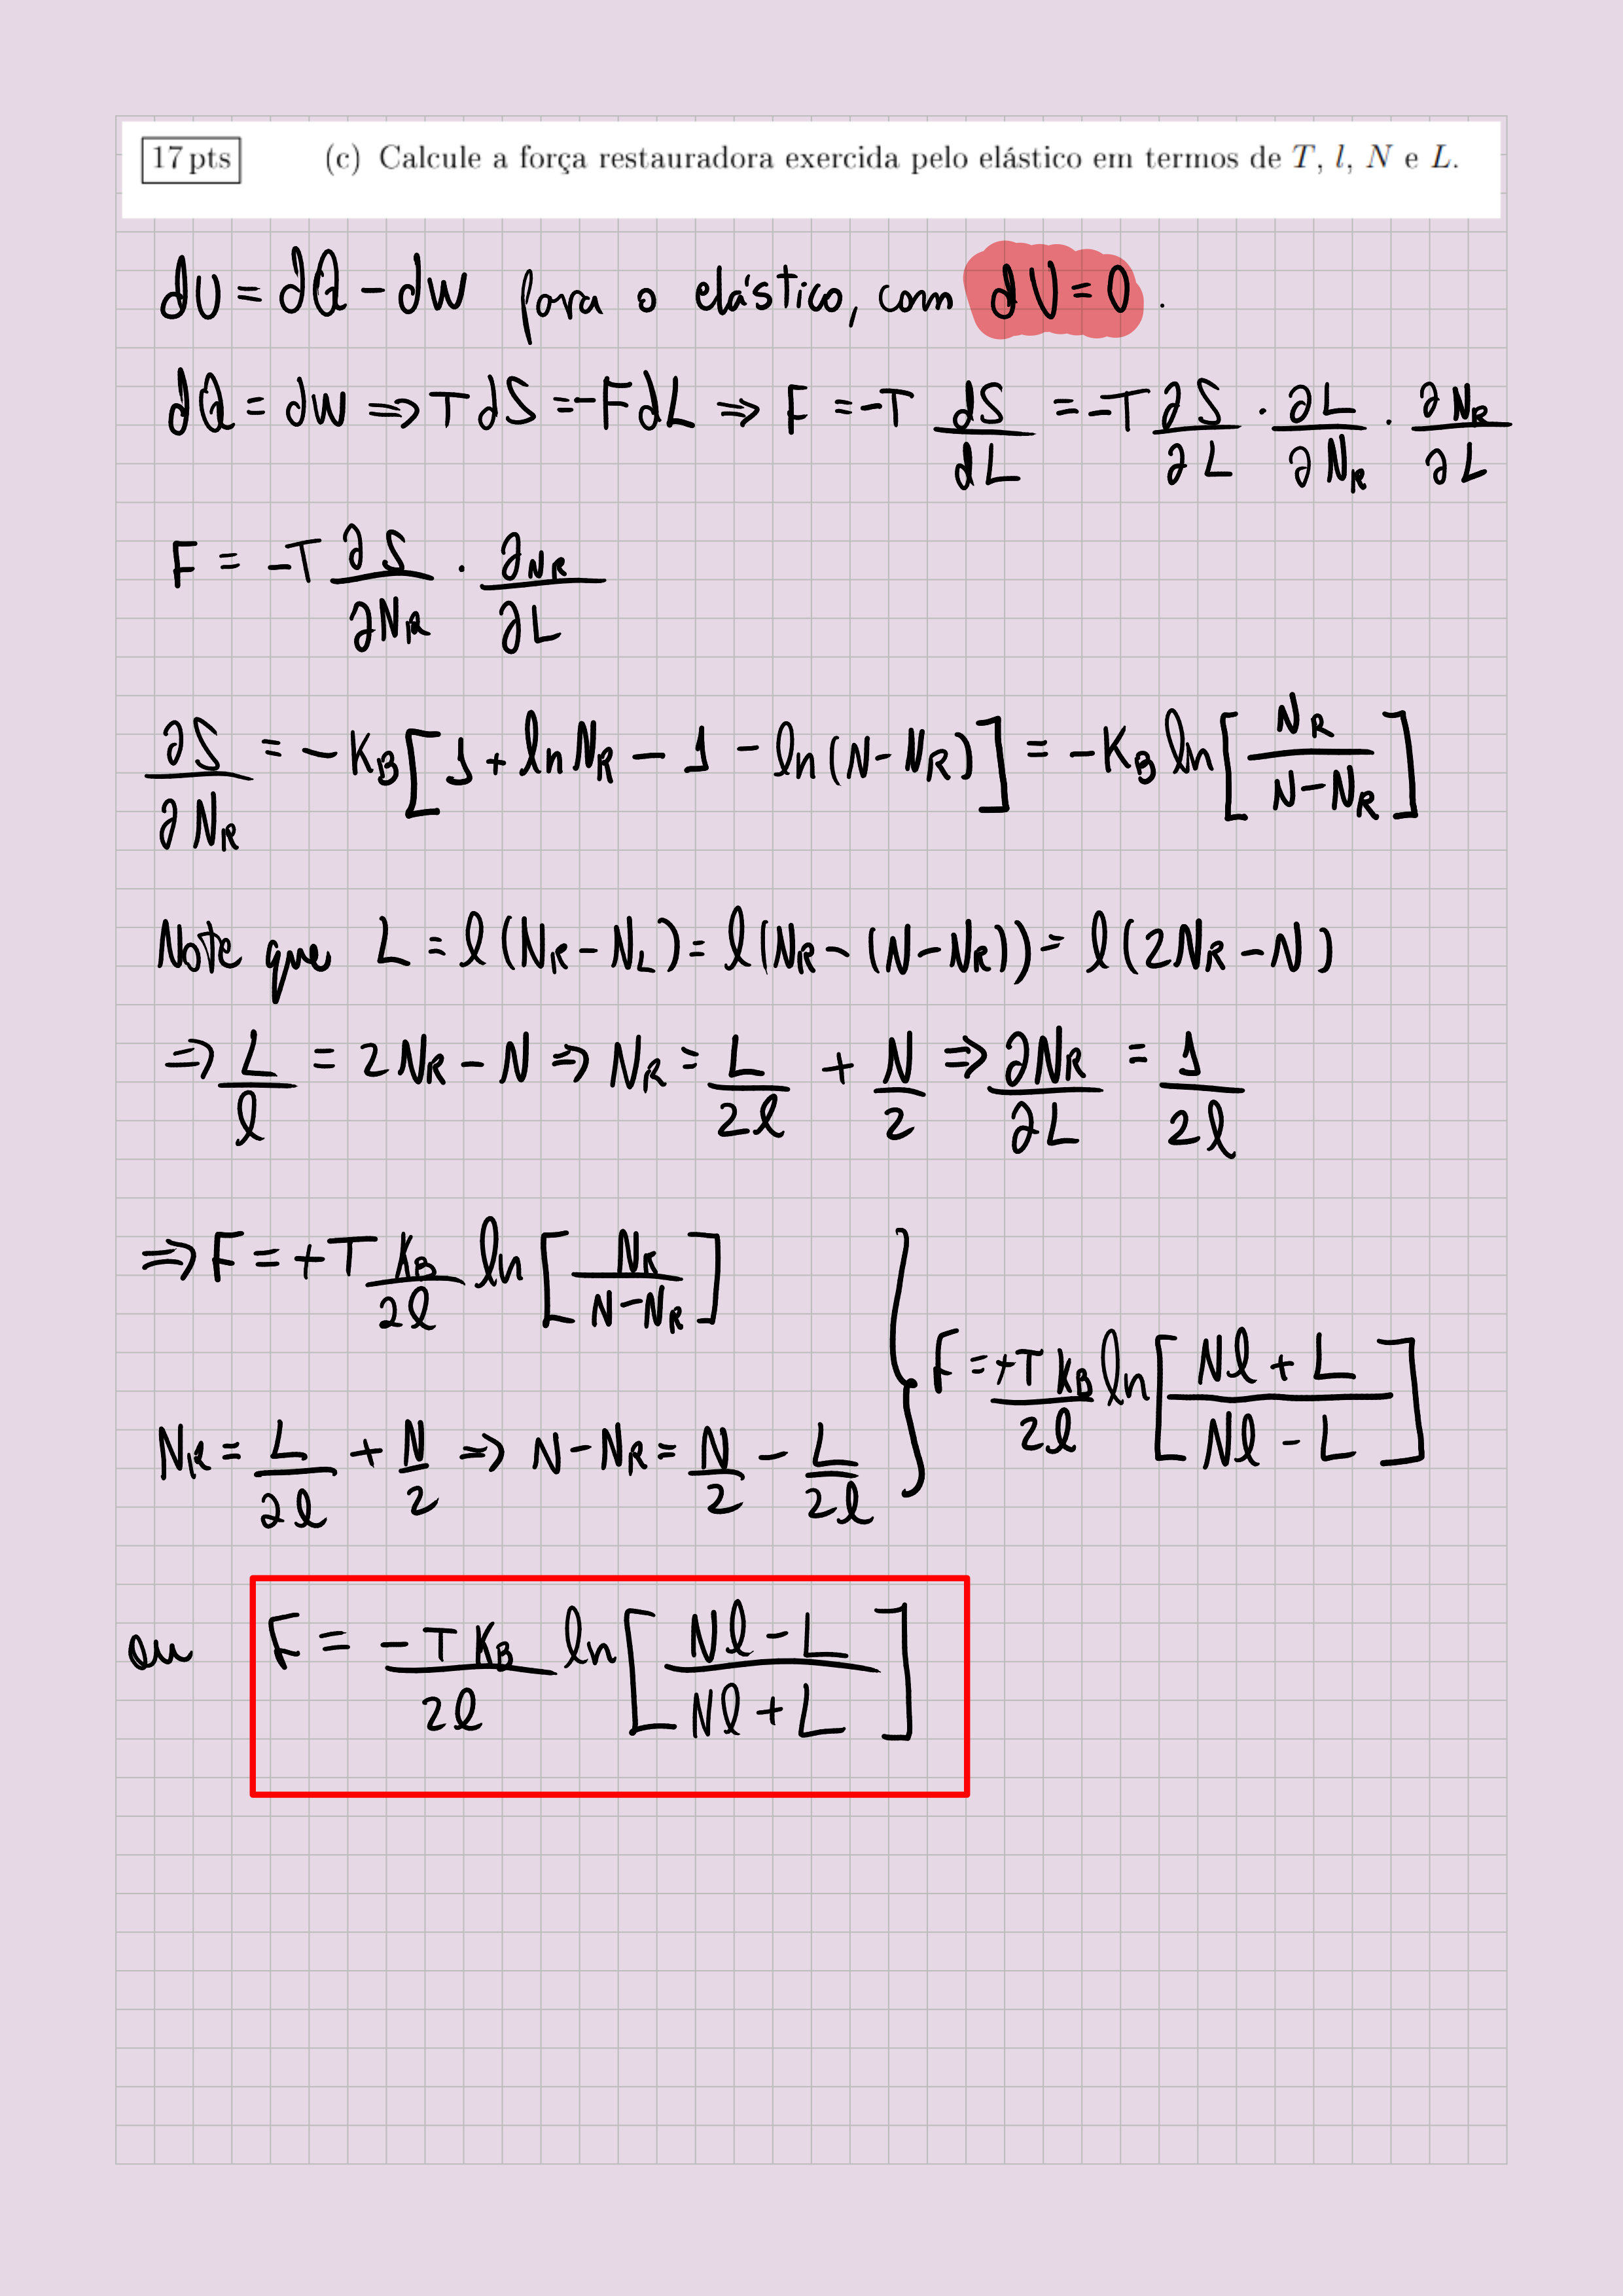 17 pts (c) Calcule a força restauradora exercida pelo elástico em termos de T, l, N e L.
dU = dQ - dW para o elástico, com dU = 0.
dQ = dW ⇒ T dS = -F dL ⇒ F = -T dS/dL = -T ∂S/∂L · ∂L/∂N_R · ∂N_R/∂L
F = -T ∂S/∂N_R · ∂N_R/∂L
∂S/∂N_R = -K_B [1 + ln N_R - 1 - ln (N - N_R)] = -K_B ln [N_R/(N - N_R)]
Note que L = l (N_R - N_L) = l (N_R - (N - N_R)) = l (2N_R - N)
⇒ L/l = 2N_R - N ⇒ N_R = L/2l + N/2 ⇒ ∂N_R/∂L = 1/2l
⇒ F = +T K_B/2l ln [N_R/(N - N_R)]
F = +T K_B/2l ln [(Nl + L)/(Nl - L)]
N_R = L/2l + N/2 ⇒ N - N_R = N/2 - L/2l
ou F = -T K_B/2l ln [(Nl - L)/(Nl + L)]